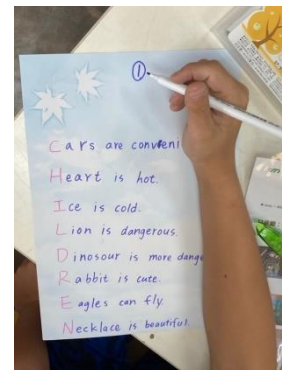 ①
Cars are conveni
Heart is hot.
Ice is cold.
Lion is dangerous.
Dinosour is more dange
Rabbit is cute.
Eagles can fly.
Necklace is beautiful.